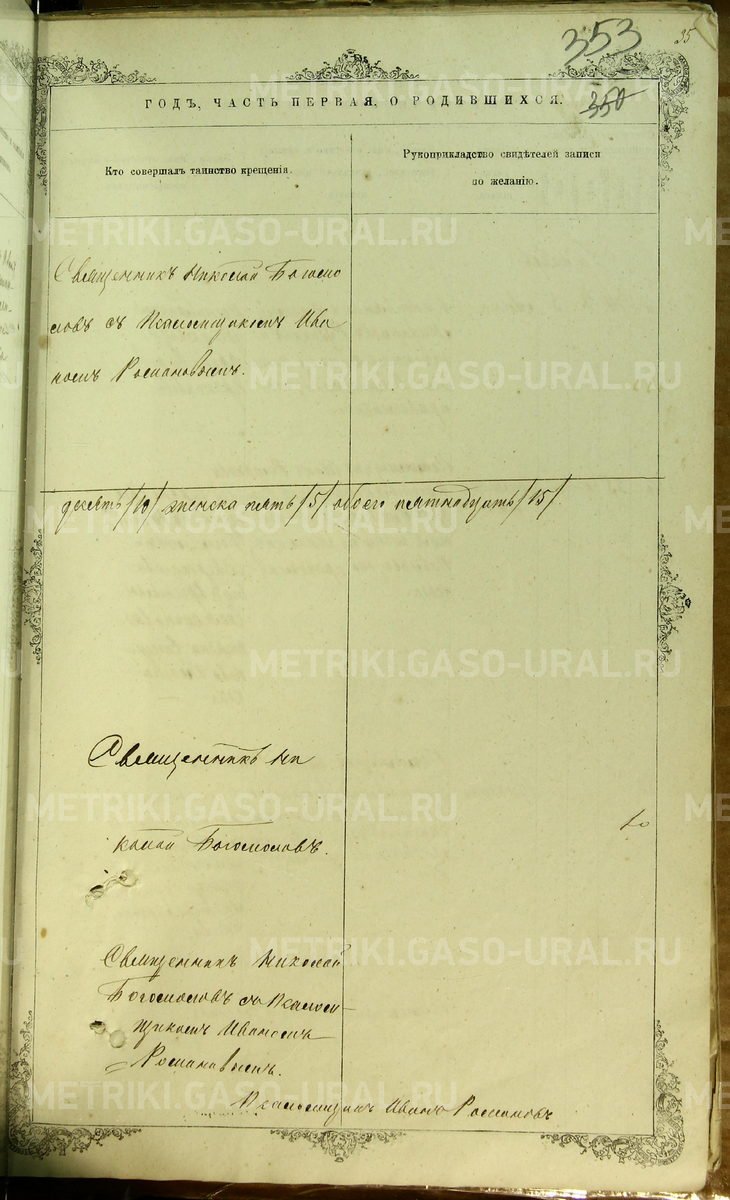 353
35
ГОДЪ, ЧАСТЬ ПЕРВАЯ, О РОДИВШИХСЯ.
350
Кто совершалъ таинство крещенія.
Рукоприкладство свидѣтелей записи
по желанію.
Священникъ Николай Богомо
ловъ съ Псаломщикомъ Ива
номъ Романовымъ.
десять /10/ женска пять /5/ обоего пятнадцать /15/
Священникъ Ни
колай Богомоловъ.
Священникъ Николай
Богомоловъ съ Псалом-
щикомъ Иваномъ
Романовымъ.
Псаломщикъ Иванъ Романовъ
METRIKI.GASO-URAL.RU